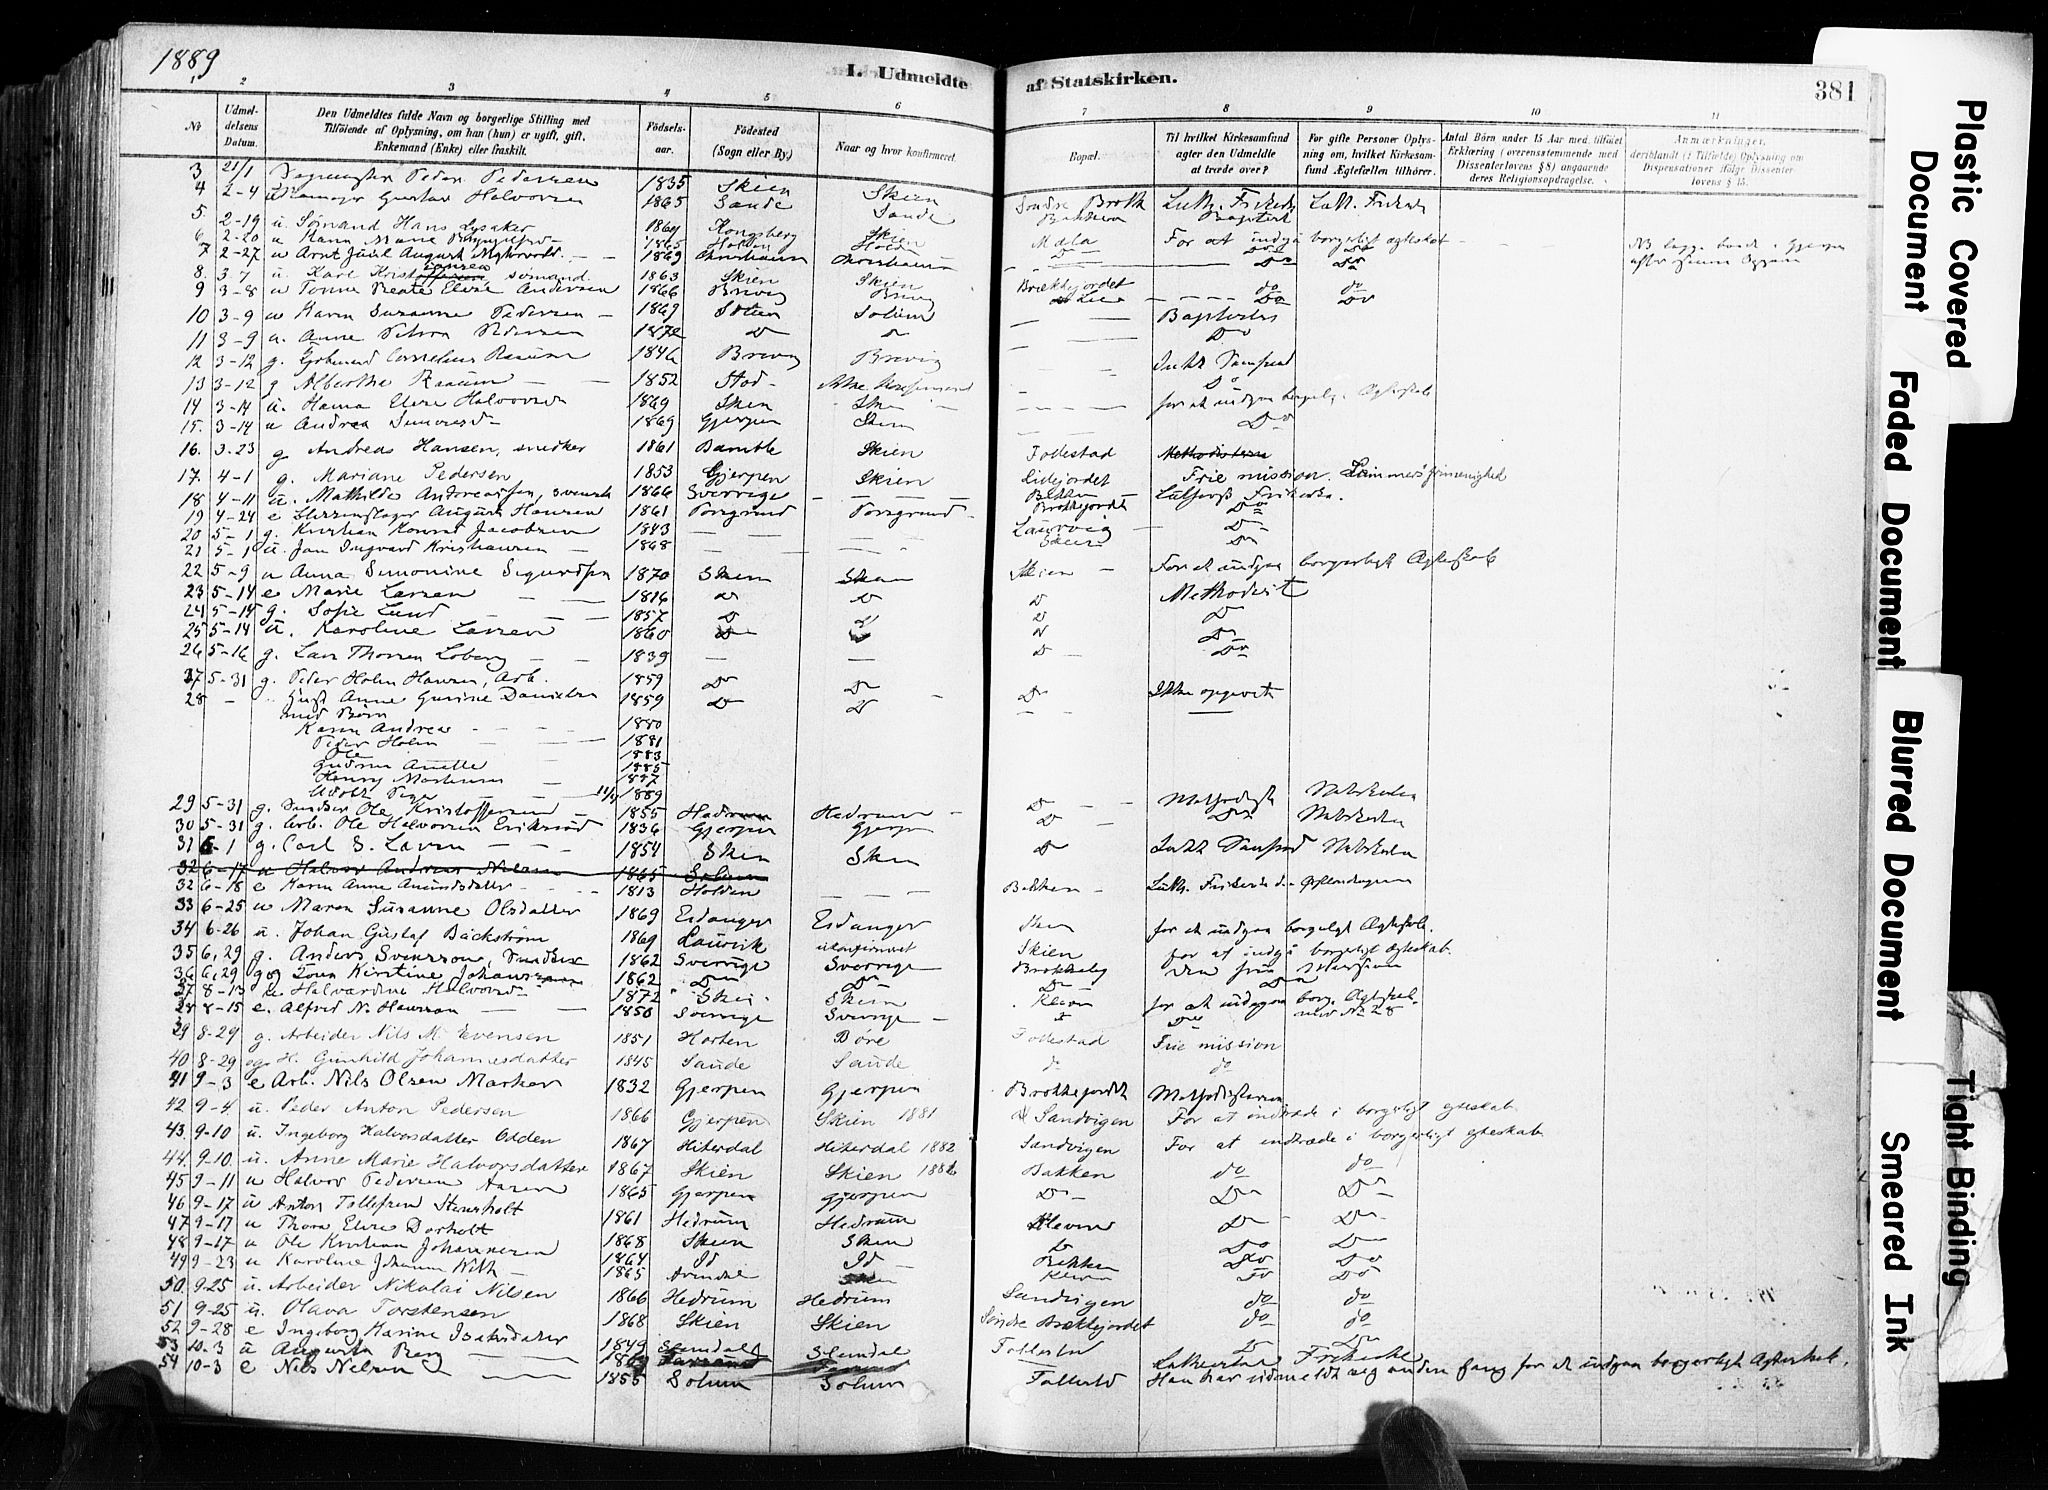 1889
I. Udmeldte af Statskirken.
381
1 2 3 4 5 6 7 8 9 10 11
No
Udmeldelsens Datum.
Den Udmeldtes fulde Navn og borgerlige Stilling med Tilføiende af Oplysning, om han (hun) er ugift, gift, Enkemand (Enke) eller fraskilt.
Fødselsaar.
Fødested (Sogn eller By.)
Naar og hvor konfirmeret.
Bopæl.
Til hvilket Kirkesamfund agter den Udmeldte at træde over?
For gifte Personer Oplysning om, hvilket Kirkesamfund Ægtefællen tilhører.
Antal Børn under 15 Aar med tilføiet Erklæring (overensstemmende med Dissenterlovens § 8) angaaende deres Religionsopdragelse.
Anmærkninger, deriblandt (i Tilfælde) Oplysning om Dispensationer ifølge Dissenterlovens § 15.
3 21/1 Peder Pedersen 1835 Skien Skien Søndre Brekk Luth. Frikirke Luth. Frikirke
4 2-4 Gustav Halvorsen 1865 Sande Sande Bakken Baptist
5 2-19 u Sømand Hans Lysaker 1864 Kongsberg Skien Mæla For at indgå borgerligt ægteskab
6 2-20 u Karen Marie 1865 Holden Holden Do Do
7 2-27 u Arnt Juul August 1869 Christiania Christiania Do Do
8 3-7 u. Karl Kristoffersen Jansen sømand 1863 Skien Skien Brekkejordet do do
9 3-8 u Tomine Beate Elise Andersen 1866 Brevig Brevig Lie Do Do
10 3-9 u Karen Susanne Pedersen 1869 Solum Solum Baptister
11 3-9 u. Anne Petra Pedersen 1872 Do Do Do
12 3-12 g. Cornelius Raaum 1846 Brevig Brevig Luth Samfund
13 3-12 g Alberthe Raaum 1852 Stod Ikke Konfirmeret Do
14 3-14 u. Hanna Elise Halvorsd 1869 Skien Skien for at indgaa borgerlig Ægteskab
15. 3-14 u Andrea Simonsd 1869 Gjerpen Skien Do
16. 3-23 g Andreas Hansen, snedker 1861 Bamble Skien Follestad Methodisterne
17. 4-1 g. Mariane Pedersen 1853 Gjerpen Skien Lidejordet Frie mission. Lammers frimenighed
18 4-11 u. Mathilde Andreassen, svensk 1866 Sverrige Bakken Luthersk Frikirke.
19 4-24 e August Hansen 1861 Porsgrund Porsgrund Brekkejordet Do
20 5-1 g. Kristian Konrad Jacobsen 1843 Laurvig Do
21 5-1 u. Jan Ingvard Kristiansen 1868 Skien Do
22 5-9 u Anna Simonine Sigurdsen 1870 Skien Skien Skien For at indgaa borgerligt Ægteskab
23 5-14 e Marie Larsen 1816 Do Do Do Methodist
24 5-14 g. Sofie Lund 1857 Do Do Do Do
25 5-14 u. Karoline Larsen 1860 Do Do Do
26 5-16 g. Lars Thorsen Loberg 1839 Do Do
27 5-31 g. Peder Holm Hansen, Arb. 1859 Do Do Do Ikke opgivet
28 Hust Anne Gurine Danielsen 1859 Do Do
med Børn
Karen Andrea 1880
Peder Holm 1881
Ole 1883
Gudrun Amelle 1885
Henry Martinius 1887
Adolf 1889
29 5-31 g. Ole Kristoffersen 1855 Hedrum Hedrum Do Methodist Statskirken
30 5-31 g. Arb. Ole Halvorsen Eriksrød 1836 Gjerpen Gjerpen Do Do Statskirken
31 6-1 g. Carl S. Larsen 1854 Skien Skien Do Luth Samfund Statskirken
32 6-17 u Halvor Andreas Nilsen 1865 Solum
32 6-18 e Karen Anne Amundsdatter 1813 Holden Bakken Luth. Frikirke
33 6-25 u Maren Susanne Olsdatter 1869 Eidanger Eidanger Skien for at indgaa borgerligt Ægteskab.
34 6-26 u. Johan Gustaf Bäckstrøm 1869 Laurvik ukonfirmeret Skien for at indgå borgerligt ægteskab.
35 6,29 g. Anders Svensson, Snedker 1862 Sverrige Sverrige Brekkeby Den frie Mission
36 6,29 g og Kirstine Johansson 1862 Do Do Do Do
37 8-13 u Halvardine Halvorsd 1872 Skien Skien Kleven for at indgaa borg. Ægteskab
28 8-15 e. Alfred N. Hansson 1850 Sverige Sverige Do med No 28
39 8-29 g. Arbeider Nils M. Evensen 1851 Horten Børe Follestad Frie mission
40 8-29 og H. Gunhild Johannesdatter 1845 Saude Saude do do
41 9-3 e Arb. Nils Olsen Marker 1832 Gjerpen Gjerpen Brekkejordet Methodisterne
42 9-4 u. Peder Anton Pedersen 1866 Gjerpen Skien 1881 Sandvigen For at indtræde i borgerligt egteskab
43. 9-10 u. Ingeborg Halvorsdatter Odden 1867 Hiterdal Hiterdal 1882 Sandvigen For at indtræde i borgerligt egteskab
44. 9-10 u. Anne Marie Halvorsdatter 1867 Skien Skien 1882 Bakken do do
45 9-11 u Halvor Pedersen Aasen 1865 Gjerpen Gjerpen Do Do Do
46 9-17 u Anton Tollefsen Stensholt 1861 Hedrum Hedrum Kleven Do Do
47 9-17 u Thora Elise Dorholt 1868 Skien Skien Do Do Do
48 9-17 u Ole Kristian Johannesen 1864 Id Id Bakken Do Do
49 9-23 u Karoline Johanne With 1865 Arendal Skien Kleven Do Do
50. 9-25 u. Arbeider Nikolai Nilsen 1866 Hedrum Hedrum Sandvigen do do
51 9-25 u. Olava Torstensen 1868 Skien Skien Søndre Brekkejordet do do
52 9-28 e Ingeborg Karine Isaksdatter 1849 Slemdal Slemdal Follestad Do Do
53 10-3 u Augusta Berg Lutherske Frikirke
54 10-3 e Nils Nelsen 1855 Solum Solum Follestd Han har udmeldt sig anden gang for at indgaa borgerligt Ægteskab.
Plastic Covered Document
Faded Document
Blurred Document
Tight Binding
Smeared Ink